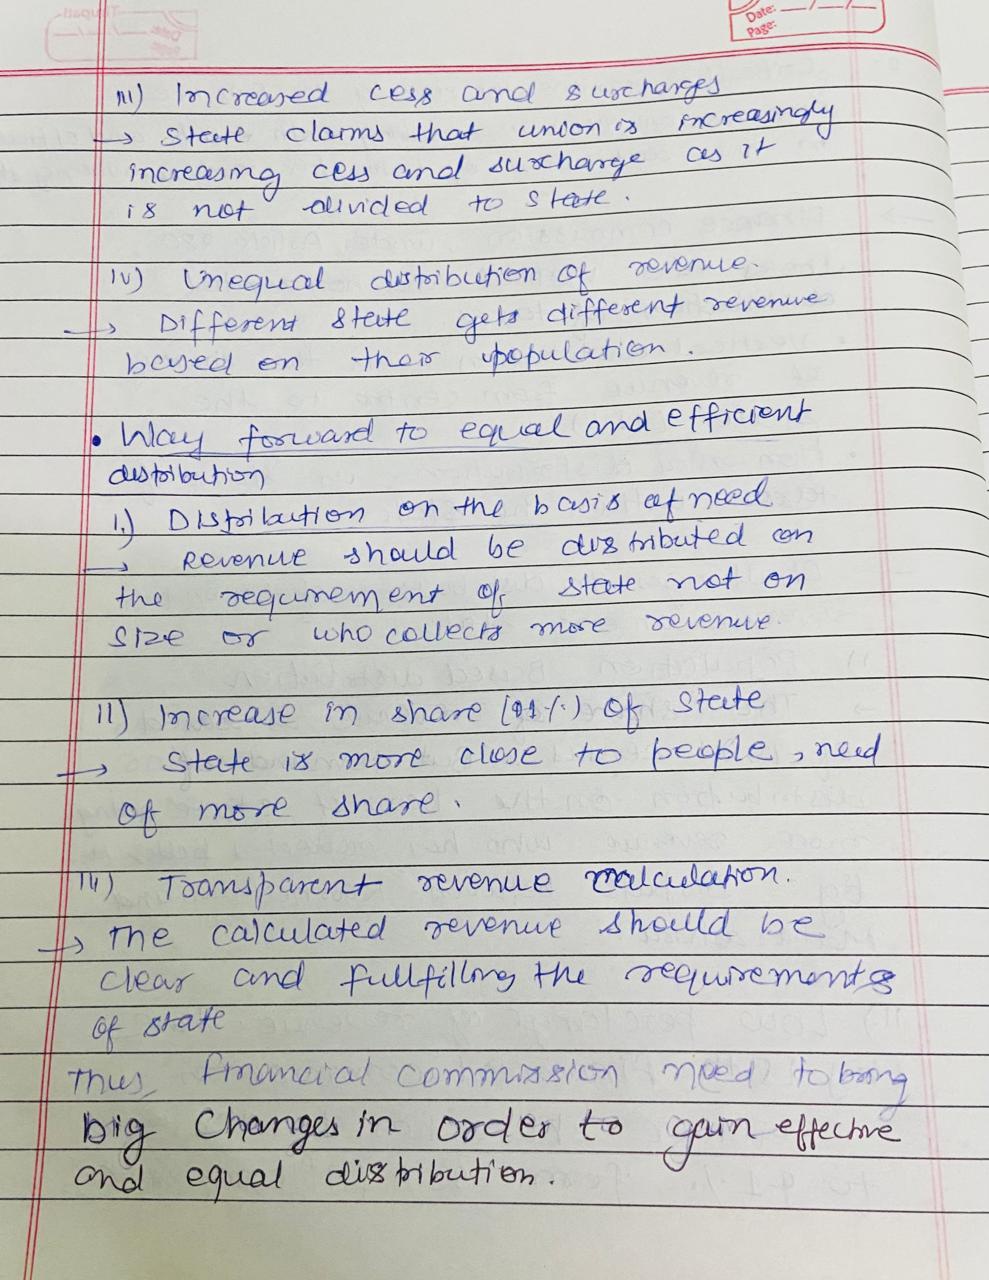 Date:
Page:
III) Increased cess and surcharges
→ State claims that union is increasingly
increasing cess and surcharge as it
is not divided to state.
IV) Unequal distribution of revenue.
→ Different state gets different revenue
based on their population.
• Way forward to equal and efficient
distribution
I.) Distribution on the basis of need
→ Revenue should be distributed on
the requirement of state not on
size or who collects more revenue.
II) Increase in share (41%) of state
→ State is more close to people, need
of more share.
III) Transparent revenue calculation.
→ The calculated revenue should be
clear and fullfilling the requirements
of state
Thus, financial commission need to bring
big changes in order to gain effective
and equal distribution.